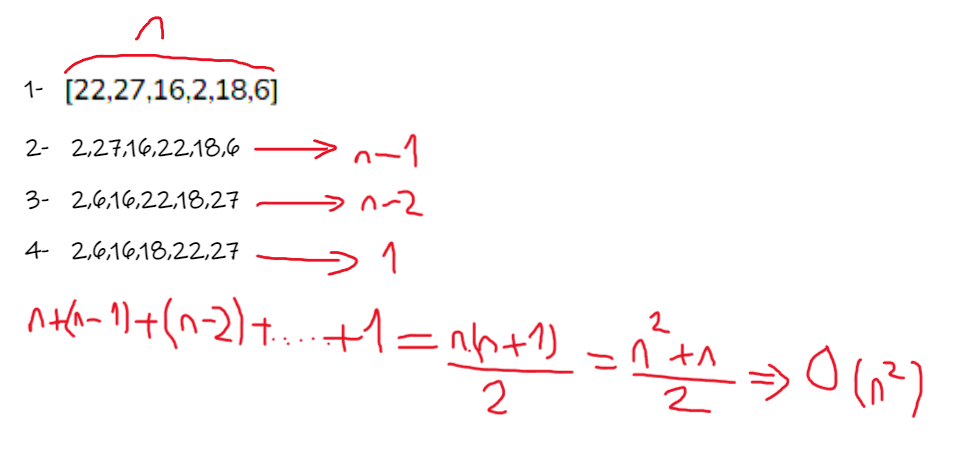 n
1- [22,27,16,2,18,6]
2- 2,27,16,22,18,6 → n-1
3- 2,6,16,22,18,27 → n-2
4- 2,6,16,18,22,27 → 1
n+(n-1)+(n-2)+.....+1 = n.(n+1)/2 = n²+n/2 ⇒ O(n²)